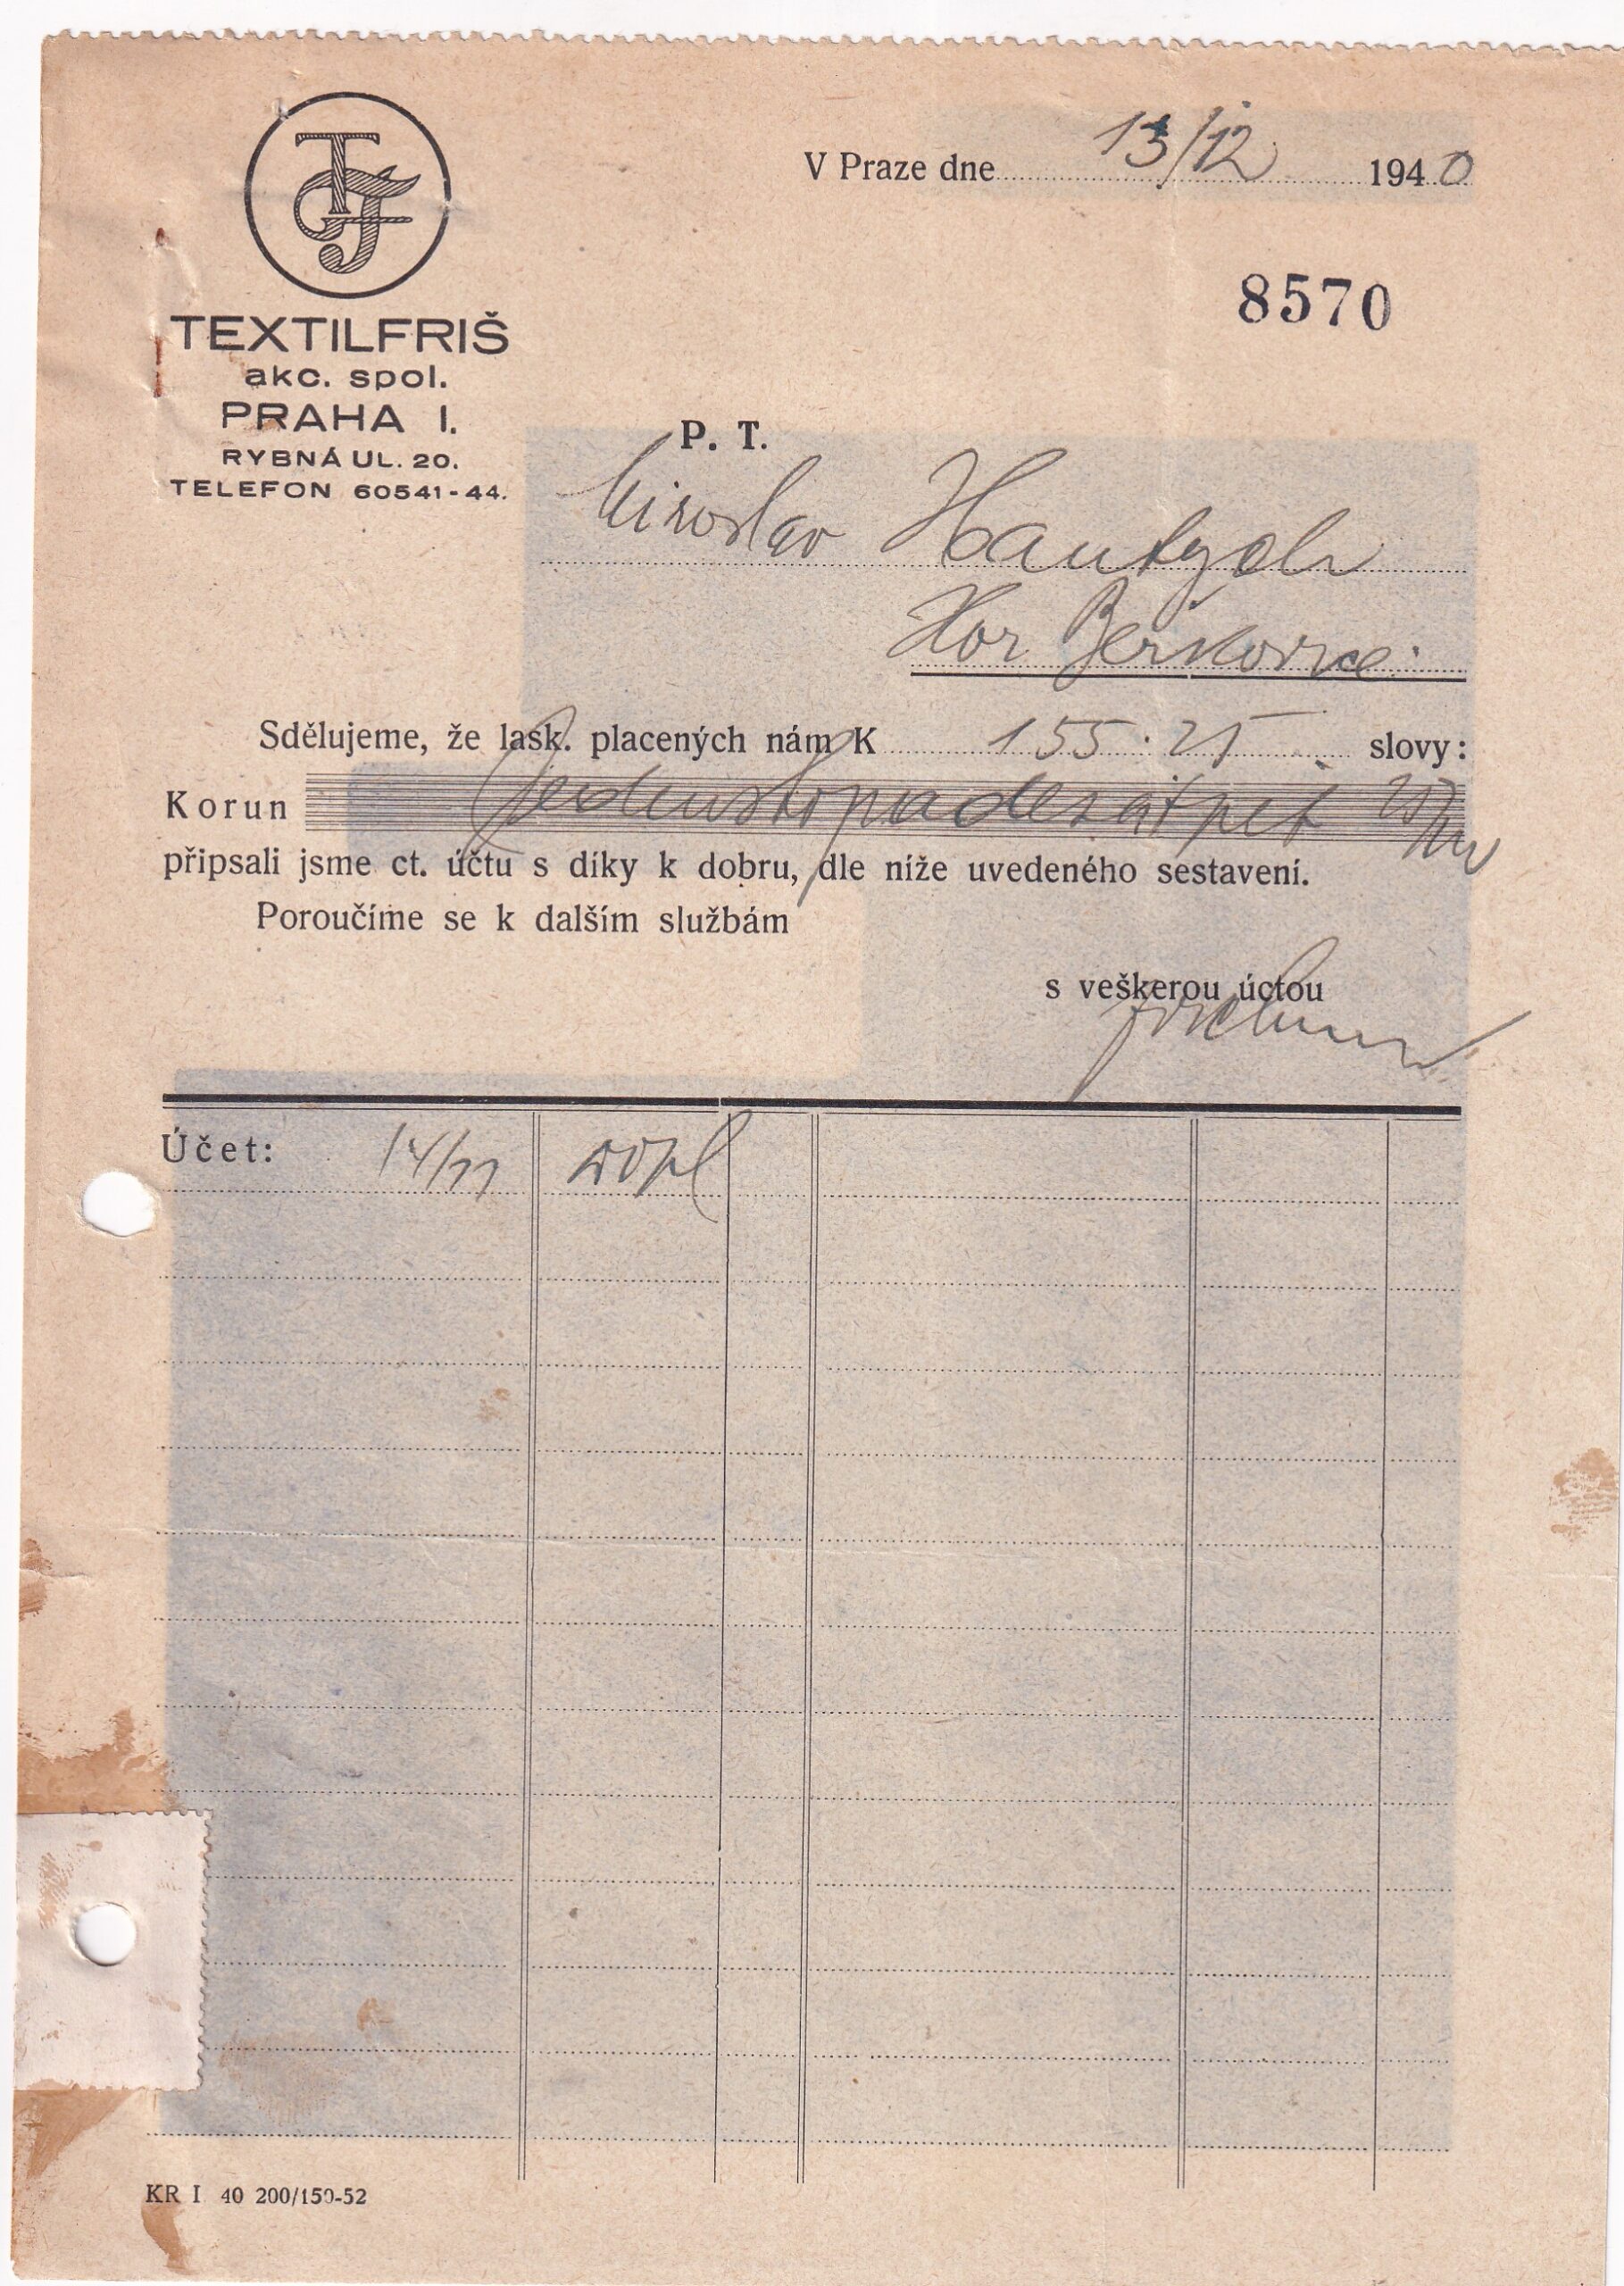 TF
V Praze dne 13/12 1940
TEXTILFRIŠ
akc. spol.
PRAHA I.
RYBNÁ UL. 20.
TELEFON 60541-44.
8570
P. T.
Miroslav Hautych
Hor Beřkovice
Sdělujeme, že lask. placených nám K 155.25 slovy:
Korun Jedenstopadesátpět
připsali jsme ct. účtu s díky k dobru, dle níže uvedeného sestavení.
Poroučíme se k dalším službám
s veškerou úctou
Účet: 14/11 dopl
KR I 40 200/150-52